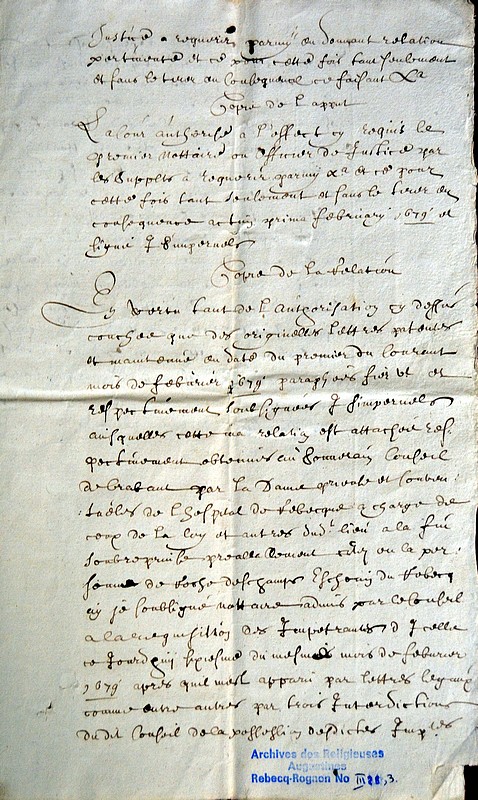 Justice a requerir parmy en donnant relation
pertinente et ce pour cette fois tant seulement
et sans le tirer en consequence ce faisant Xa
Copie de l'appnt
La Cour authorise a l'effect cy requis le
premier Nottaire ou officier de Justice par
les Supplts a requerir parmy Xa et ce pour
cette fois tant seulement et sans le tirer en
consequence actum prima february 1679 et
signé J Simpernels
Copie de la Relation
En vertu tant de l'authorisation cy dessus
couchee que des originelles lettres patentes
et maintenue en date du premier du courent
mois de feburier 1679 paraphées et
respectivement soubsignées J Simpernels
ausquelles cette ma relation est attachée res:
pectivement obtenues au Souverain Conseil
de Brabant par la Dame prieuse et Conven:
:tuëles de l'hospital de Rebecque a charge de
ceux de la loy et autres dudt lieu a la fin
soubreprinse preallablement en la per:
sonne de Roche deschamps Eschevin du Rebecq
ay je soubsigné nottaire admis par le Conseil
a la requisition des Impetrantes d'Icelle
ce Jourdhuy sixiesme du mesme mois de feburier
1679 apres quil mest apparu par lettres legaux
comme entre autres par trois Interdictions
du dit Conseil de la possession desdictes Imptes
Archives des Religieuses
Augustines
Rebecq-Rognon No III 28,3.